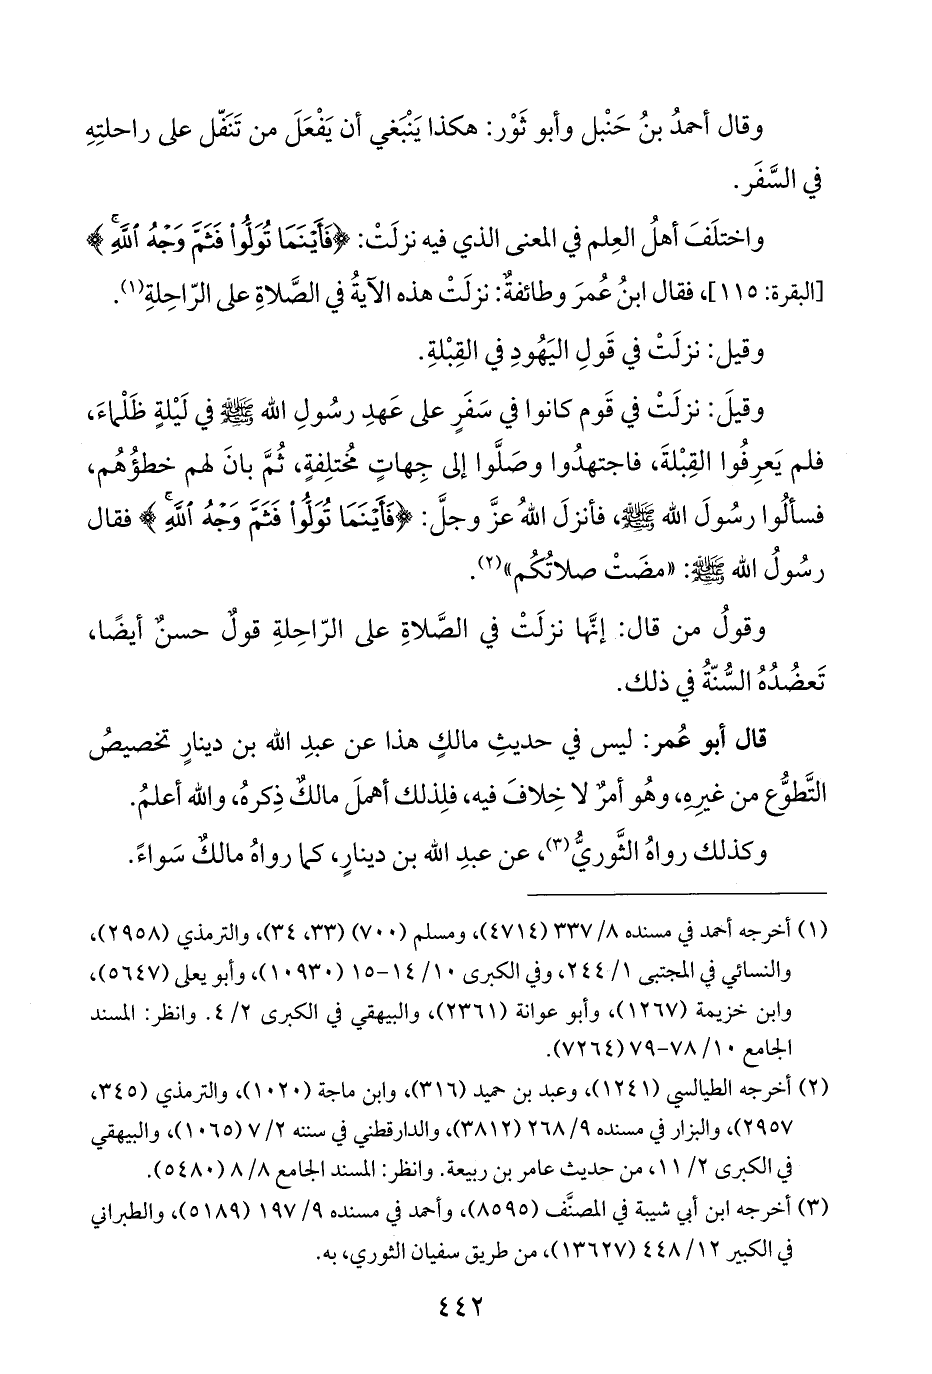 وقال أحمدُ بنُ حَنْبل وأبو ثَوْر: هكذا يَنْبَغي أن يَفْعَلَ من تَنَفّل على راحلتِهِ
في السَّفَر.
واختلَفَ أهلُ العِلم في المعنى الذي فيه نزلَتْ: ﴿فَأَيْنَمَا تُوَلُّوا۟ فَثَمَّ وَجْهُ ٱللَّهِ ۚ﴾
[البقرة: ١١٥]، فقال ابنُ عُمرَ وطائفةٌ: نزلَتْ هذه الآيةُ في الصَّلاةِ على الرّاحِلةِ(١).
وقيل: نزلَتْ في قَولِ اليَهُودِ في القِبْلةِ.
وقيلَ: نزلَتْ في قَوم كانوا في سَفَرٍ على عَهدِ رسُولِ الله ﷺ في لَيْلةٍ ظَلْماءَ،
فلم يَعرِفُوا القِبْلةَ، فاجتهدُوا وصَلَّوا إلى جِهاتٍ مُختلِفةٍ، ثُمَّ بانَ لهم خطؤُهُم،
فسألُوا رسُولَ الله ﷺ، فأنزلَ اللهُ عزَّ وجلَّ: ﴿فَأَيْنَمَا تُوَلُّوا۟ فَثَمَّ وَجْهُ ٱللَّهِ ۚ﴾ فقال
رسُولُ الله ﷺ: «مضَتْ صلاتُكُم»(٢).
وقولُ من قال: إنَّها نزلَتْ في الصَّلاةِ على الرّاحِلةِ قولٌ حسنٌ أيضًا،
تَعضُدُهُ السُّنّةُ في ذلك.
قال أبو عُمر: ليس في حديثِ مالكٍ هذا عن عبدِ الله بن دينارٍ تخصيصُ
التَّطوُّع من غيرِهِ، وهُو أمرٌ لا خِلافَ فيه، فلِذلك أهملَ مالكٌ ذِكرهُ، والله أعلمُ.
وكذلك رواهُ الثَّوريُّ(٣)، عن عبدِ الله بن دينارٍ، كما رواهُ مالكٌ سَواءً.
(١) أخرجه أحمد في مسنده ٨/ ٣٣٧ (٤٧١٤)، ومسلم (٧٠٠) (٣٣، ٣٤)، والترمذي (٢٩٥٨)،
والنسائي في المجتبى ١/ ٢٤٤، وفي الكبرى ١٠/ ١٤-١٥ (١٠٩٣٠)، وأبو يعلى (٥٦٤٧)،
وابن خزيمة (١٢٦٧)، وأبو عوانة (٢٣٦١)، والبيهقي في الكبرى ٢/ ٤. وانظر: المسند
الجامع ١٠/ ٧٨-٧٩ (٧٢٦٤).
(٢) أخرجه الطيالسي (١٢٤١)، وعبد بن حميد (٣١٦)، وابن ماجة (١٠٢٠)، والترمذي (٣٤٥،
٢٩٥٧)، والبزار في مسنده ٩/ ٢٦٨ (٣٨١٢)، والدارقطني في سننه ٢/ ٧ (١٠٦٥)، والبيهقي
في الكبرى ٢/ ١١، من حديث عامر بن ربيعة. وانظر: المسند الجامع ٨/ ٨ (٥٤٨٠).
(٣) أخرجه ابن أبي شيبة في المصنَّف (٨٥٩٥)، وأحمد في مسنده ٩/ ١٩٧ (٥١٨٩)، والطبراني
في الكبير ١٢/ ٤٤٨ (١٣٦٢٧)، من طريق سفيان الثوري، به.
٤٤٢